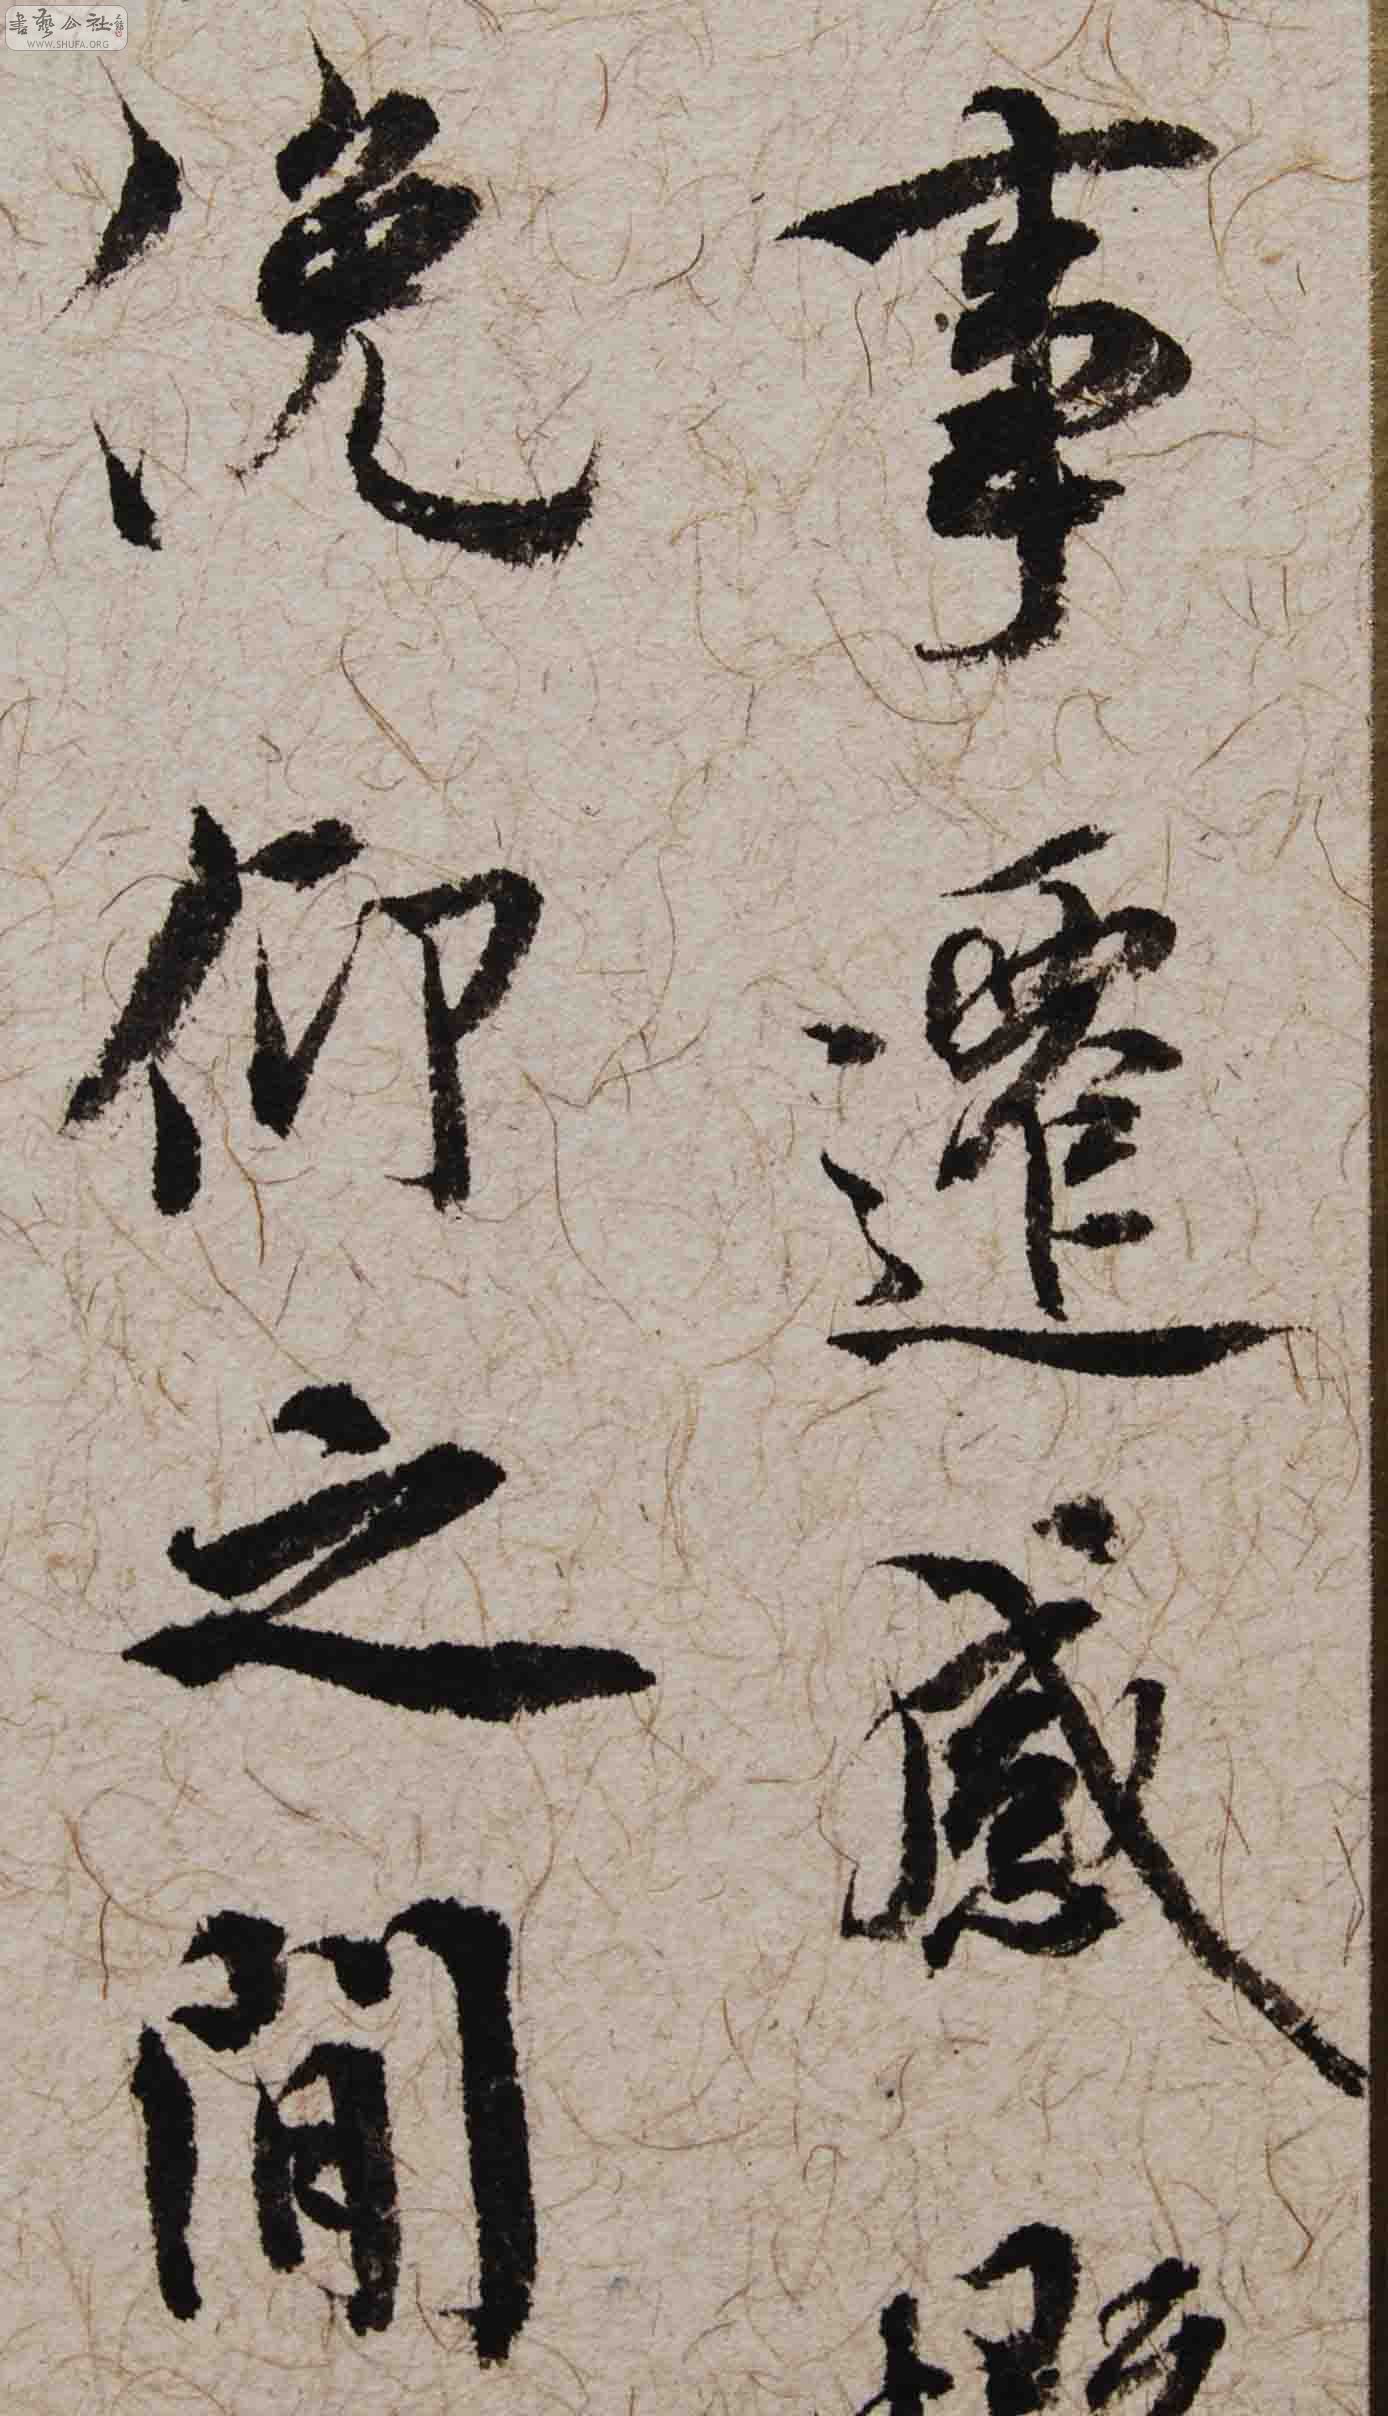 書藝公社
WWW.SHUFA.ORG
事遷感
俛仰之間